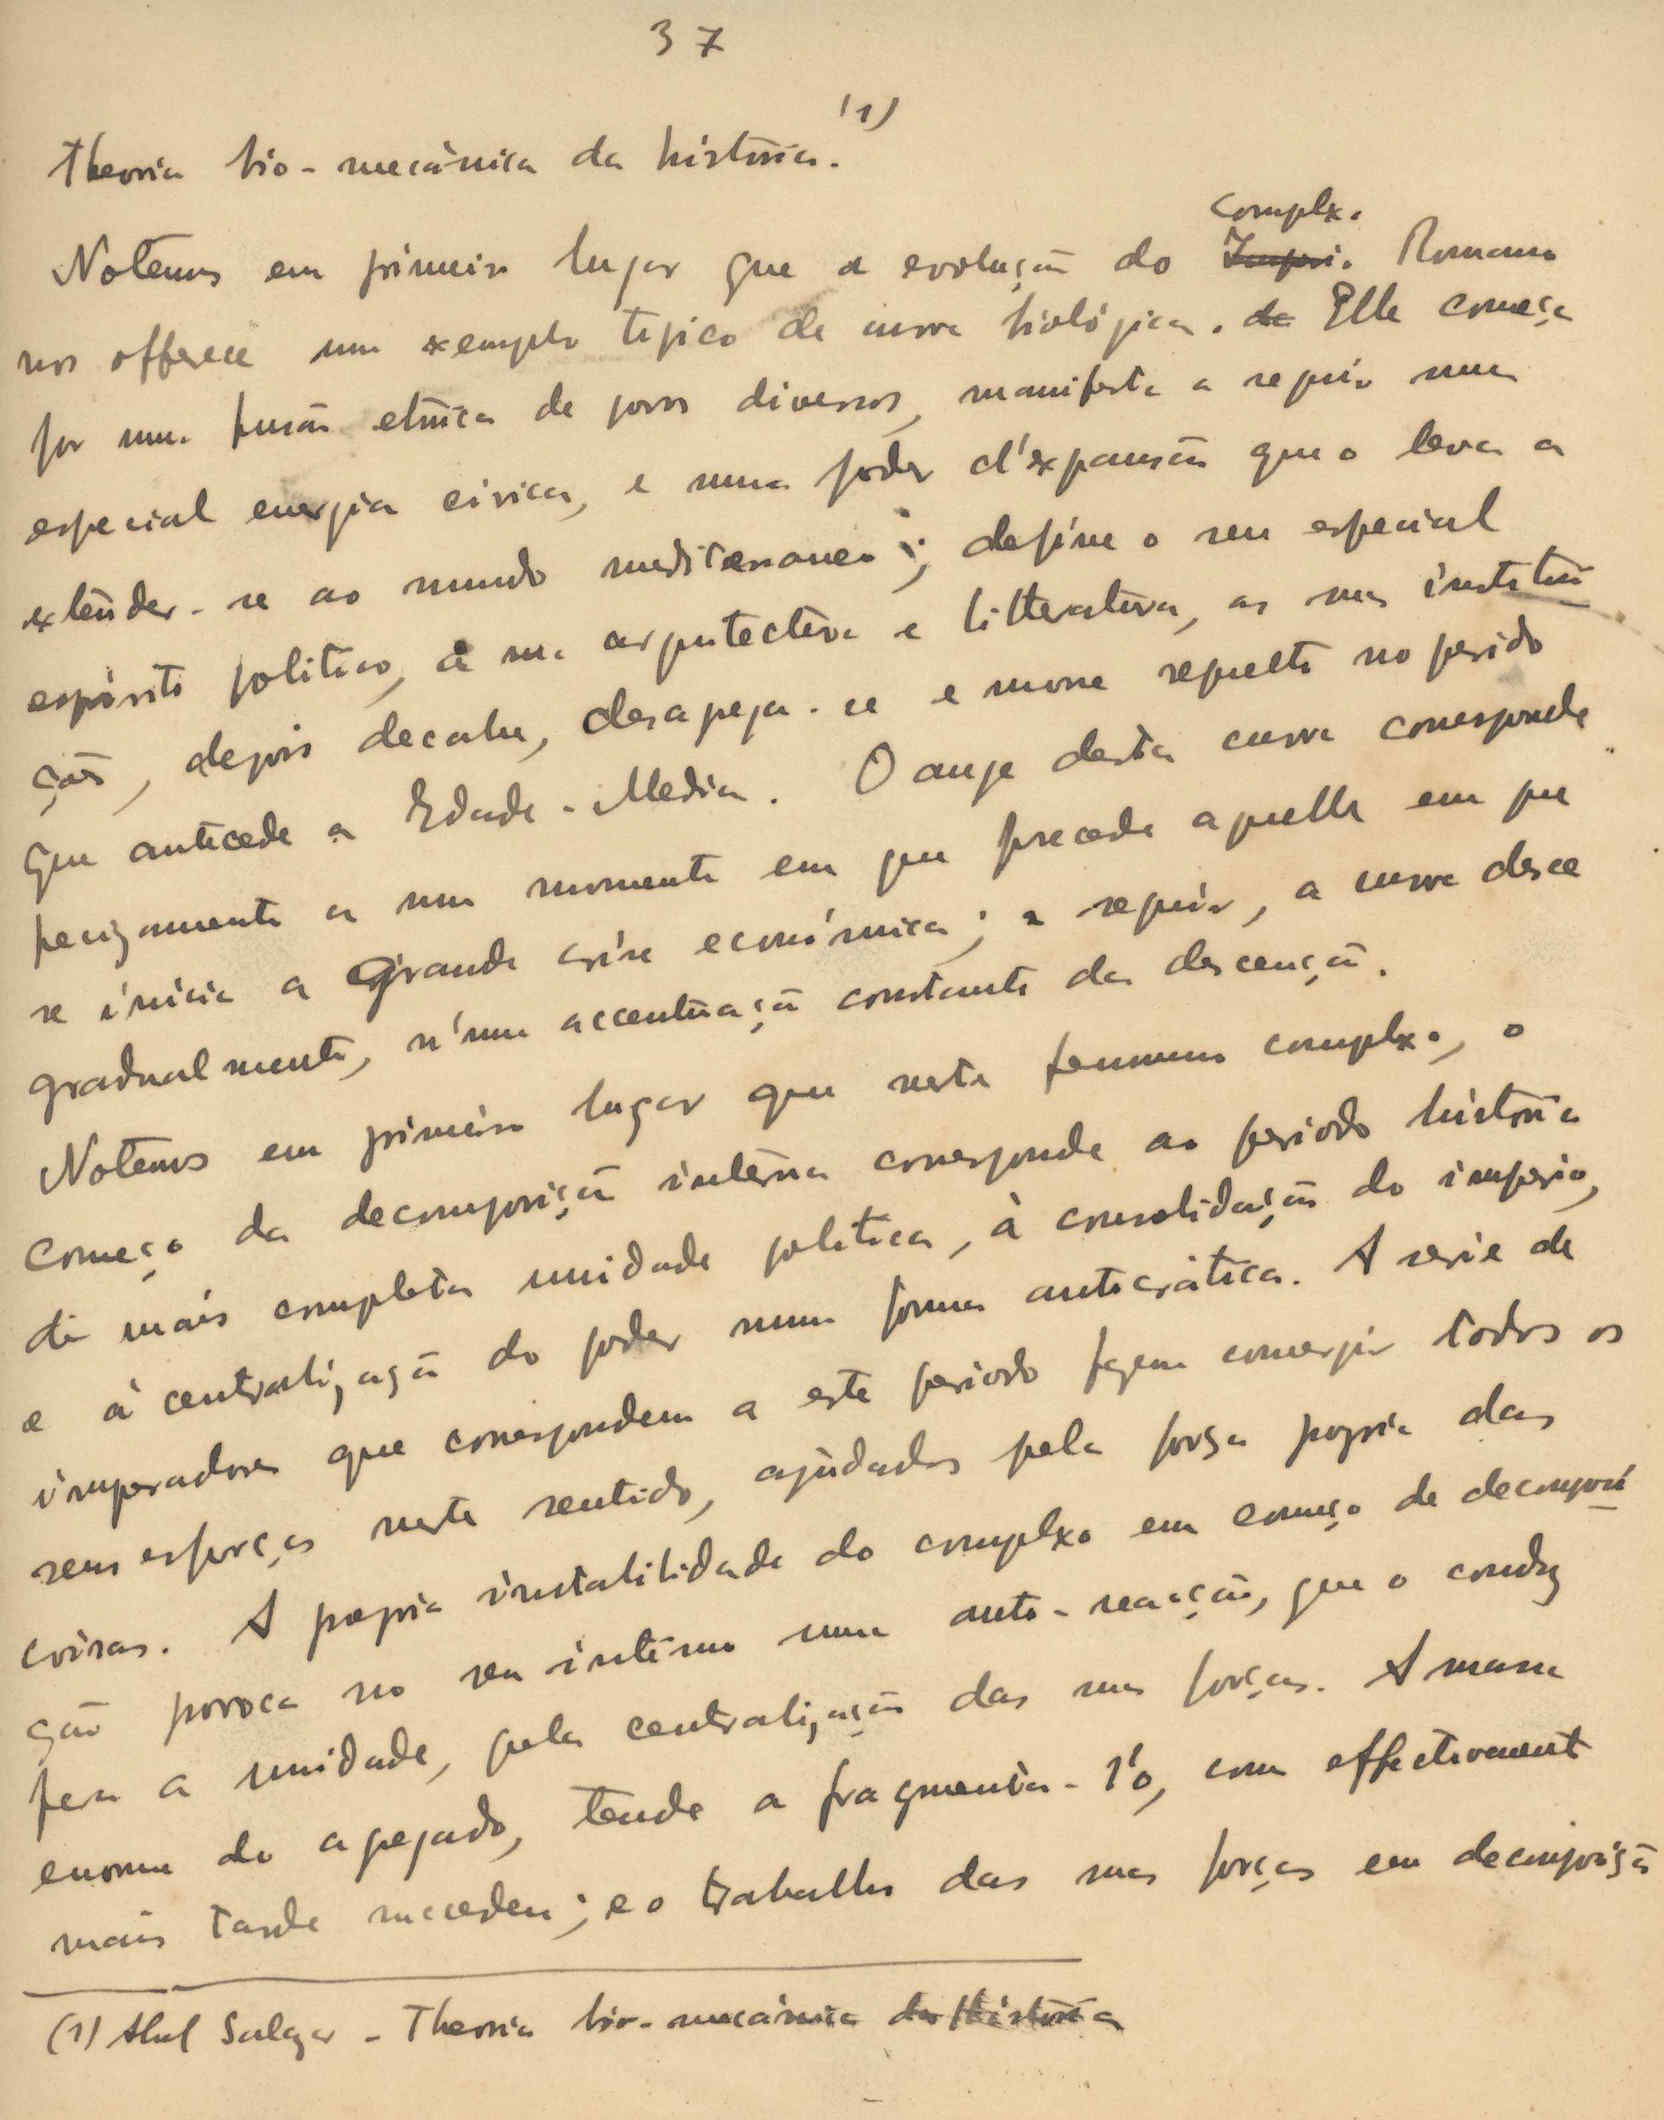 37
Theoria bio-mecânica da história. (1)
Complexo
Notemos em primeiro lugar que a evolução do Imperio Romano
nos offerece um exemplo tipico de curva biológica. de Elle começa
por uma fusão etnica de povos diversos, manifesta a seguir uma
especial energia civica, e uma poder d'expansão que o leva a
extender-se ao mundo mediterraneo; define o seu especial
espirito politico, a sua arquitectura e litteratura, as suas institui
ções, depois decahe, desagrega-se e morre
que antecede a Edade-Media. O auge desta curva corresponde
precizamente a um momento em que precede aquelle em que
se inicia a grande crise económica; a seguir, a curva desce
gradualmente, n'uma accentuação constante da descenção.
Notemos em primeiro lugar que neste fenomeno complexo, o
começo da decomposição interna corresponde ao periodo historico
da mais completa unidade politica, à consolidação do imperio,
e à centralização do poder numa forma autocrática. A serie de
imperadores que correspondem a este periodo fazem convergir todos os
seus esforços neste sentido, ajudados pela força propria das
coisas. A propria instabilidade do complexo em começo de decomposi
ção provoca no seu intimo uma auto-reacção, que o conduz
para a unidade, pela centralização das suas forças. A massa
enorme do agregado, tende a fragmenta-l'o, como effectivamente
mais tarde succedeu; e o trabalho das suas forças em decomposição
(1) Abel Salazar - Theoria bio-mecânica da História